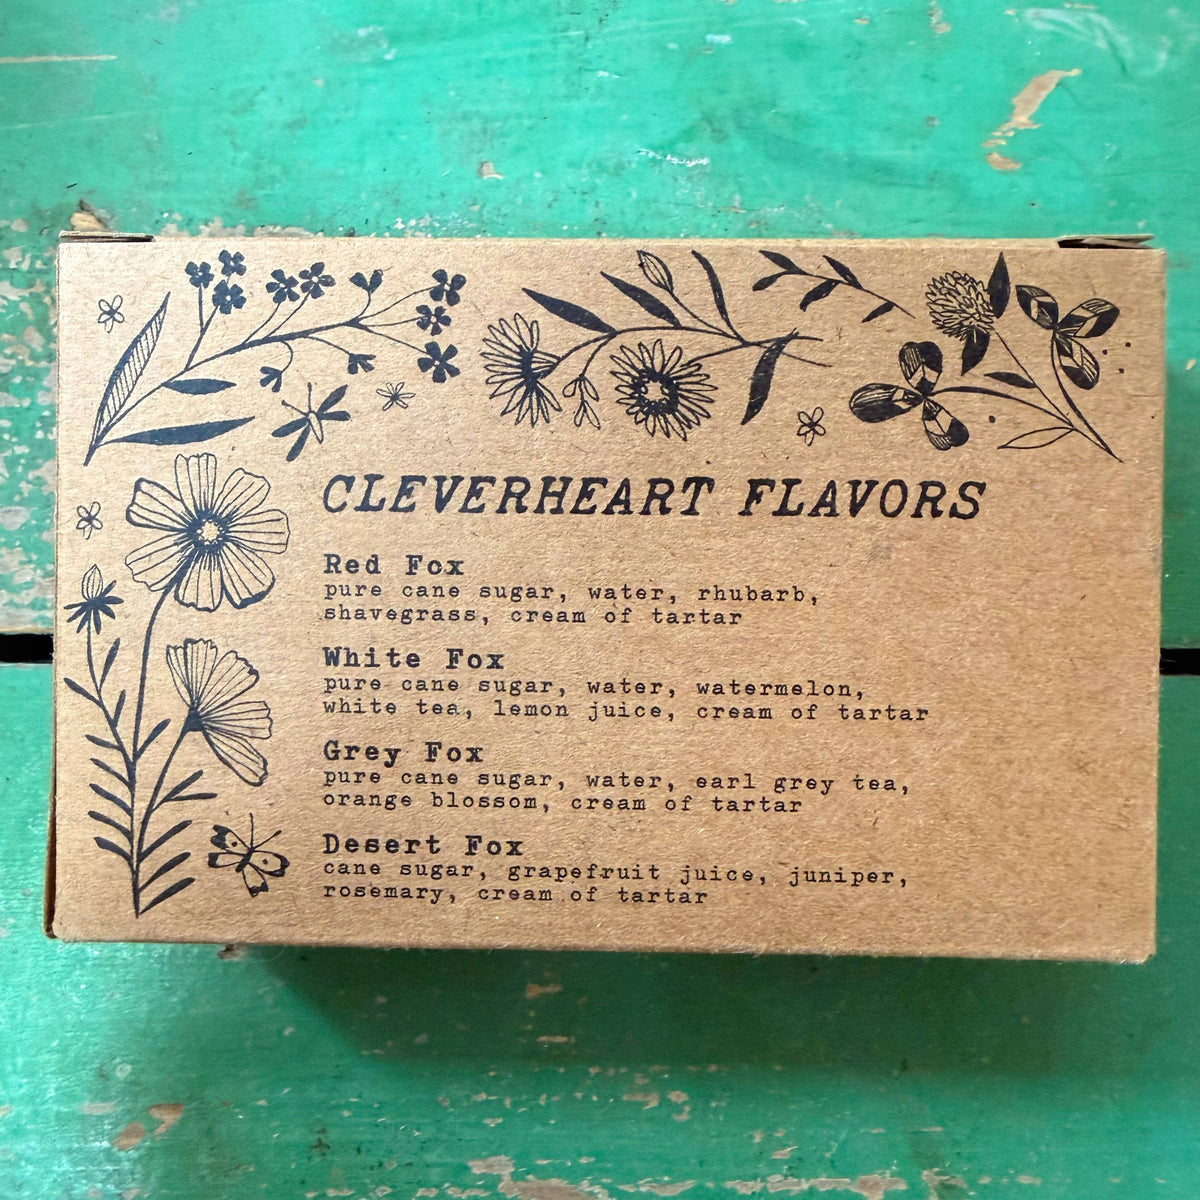 CLEVERHEART FLAVORS
Red Fox
pure cane sugar, water, rhubarb,
shavegrass, cream of tartar
White Fox
pure cane sugar, water, watermelon,
white tea, lemon juice, cream of tartar
Grey Fox
pure cane sugar, water, earl grey tea,
orange blossom, cream of tartar
Desert Fox
cane sugar, grapefruit juice, juniper,
rosemary, cream of tartar